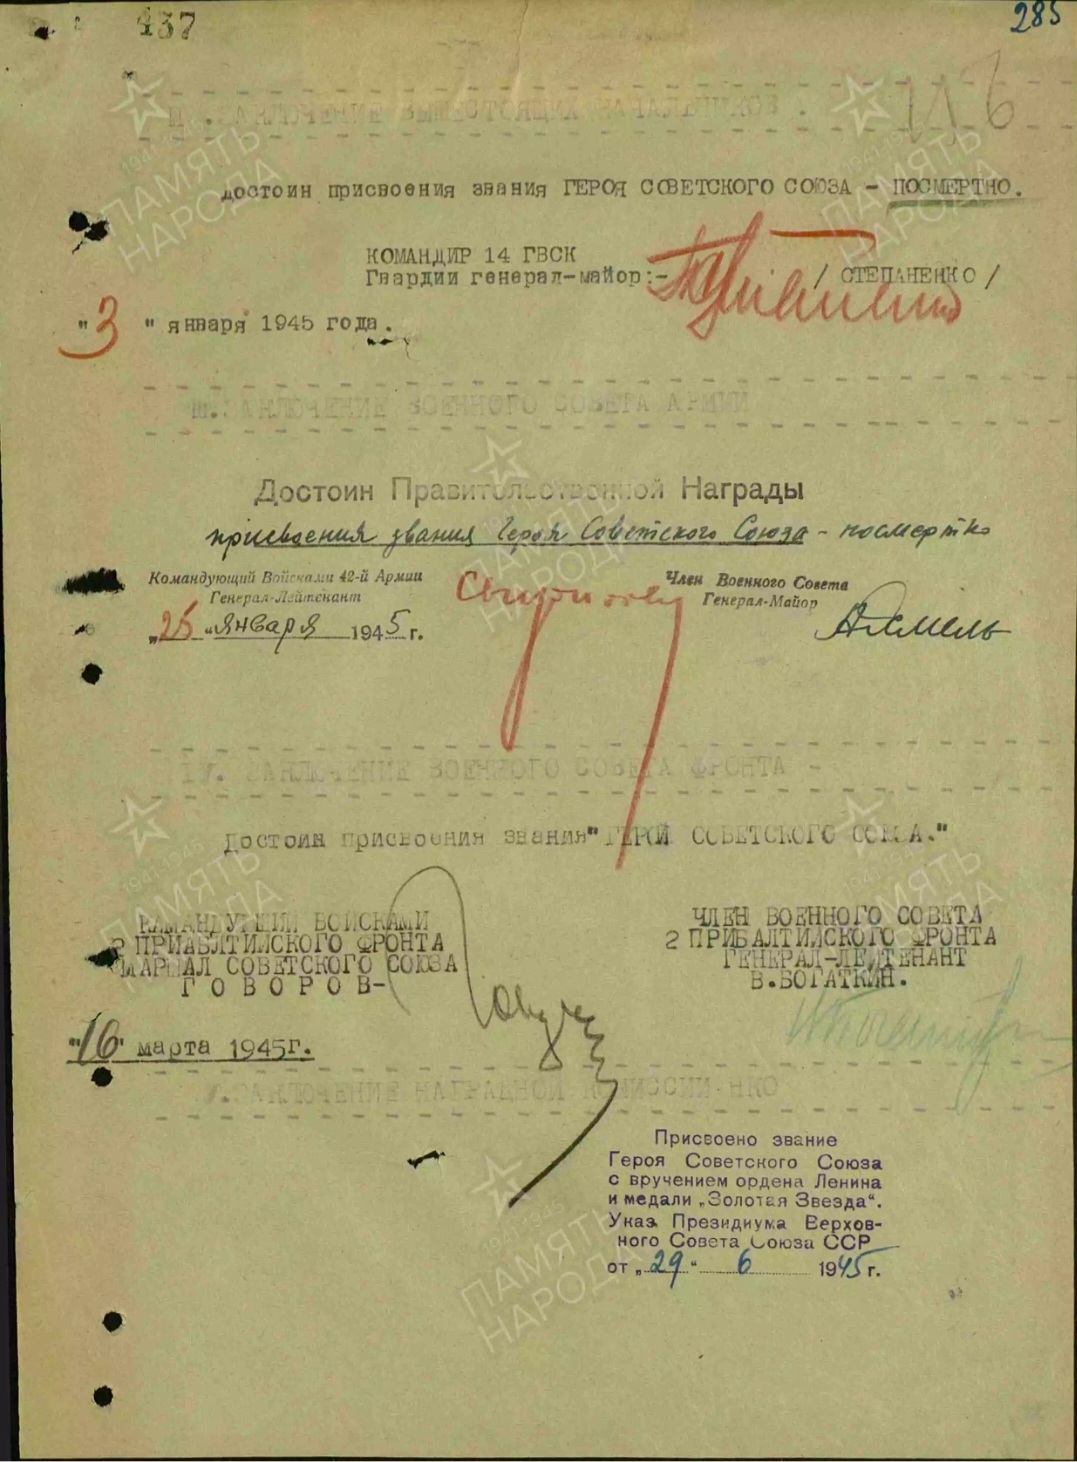 437
285
116
П. ЗАКЛЮЧЕНИЕ ВЫШЕСТОЯЩИХ НАЧАЛЬНИКОВ.
достоин присвоения звания ГЕРОЯ СОВЕТСКОГО СОЮЗА - ПОСМЕРТНО.
КОМАНДИР 14 ГВСК
Гвардии генерал-майор:- / СТЕПАНЕНКО /
"3" января 1945 года.
Ш. ЗАКЛЮЧЕНИЕ ВОЕННОГО СОВЕТА АРМИИ
Достоин Правительственной Награды
присвоения звания Героя Советского Союза - посмертно
Командующий Войсками 42-й Армии
Генерал-Лейтенант
Свиридов
Член Военного Совета
Генерал-Майор
„25 " января 1945 г.
IV. ЗАКЛЮЧЕНИЕ ВОЕННОГО СОВЕТА ФРОНТА -
Достоин присвоения звания "ГЕРОЙ СОВЕТСКОГО СОЮЗА."
КАМАНДУЮЩИЙ ВОЙСКАМИ
2 ПРИБАЛТИЙСКОГО ФРОНТА
МАРШАЛ СОВЕТСКОГО СОЮЗА
ГОВОРОВ-
ЧЛЕН ВОЕННОГО СОВЕТА
2 ПРИБАЛТИЙСКОГО ФРОНТА
ГЕНЕРАЛ-ЛЕЙТЕНАНТ
В.БОГАТКИН.
"16" марта 1945г.
V. ЗАКЛЮЧЕНИЕ НАГРАДНОЙ КОМИССИИ НКО
Присвоено звание
Героя Советского Союза
с вручением ордена Ленина
и медали „Золотая Звезда".
Указ Президиума Верхов-
ного Совета Союза ССР
от „29" 6 1945 г.
ПАМЯТЬ
НАРОДА